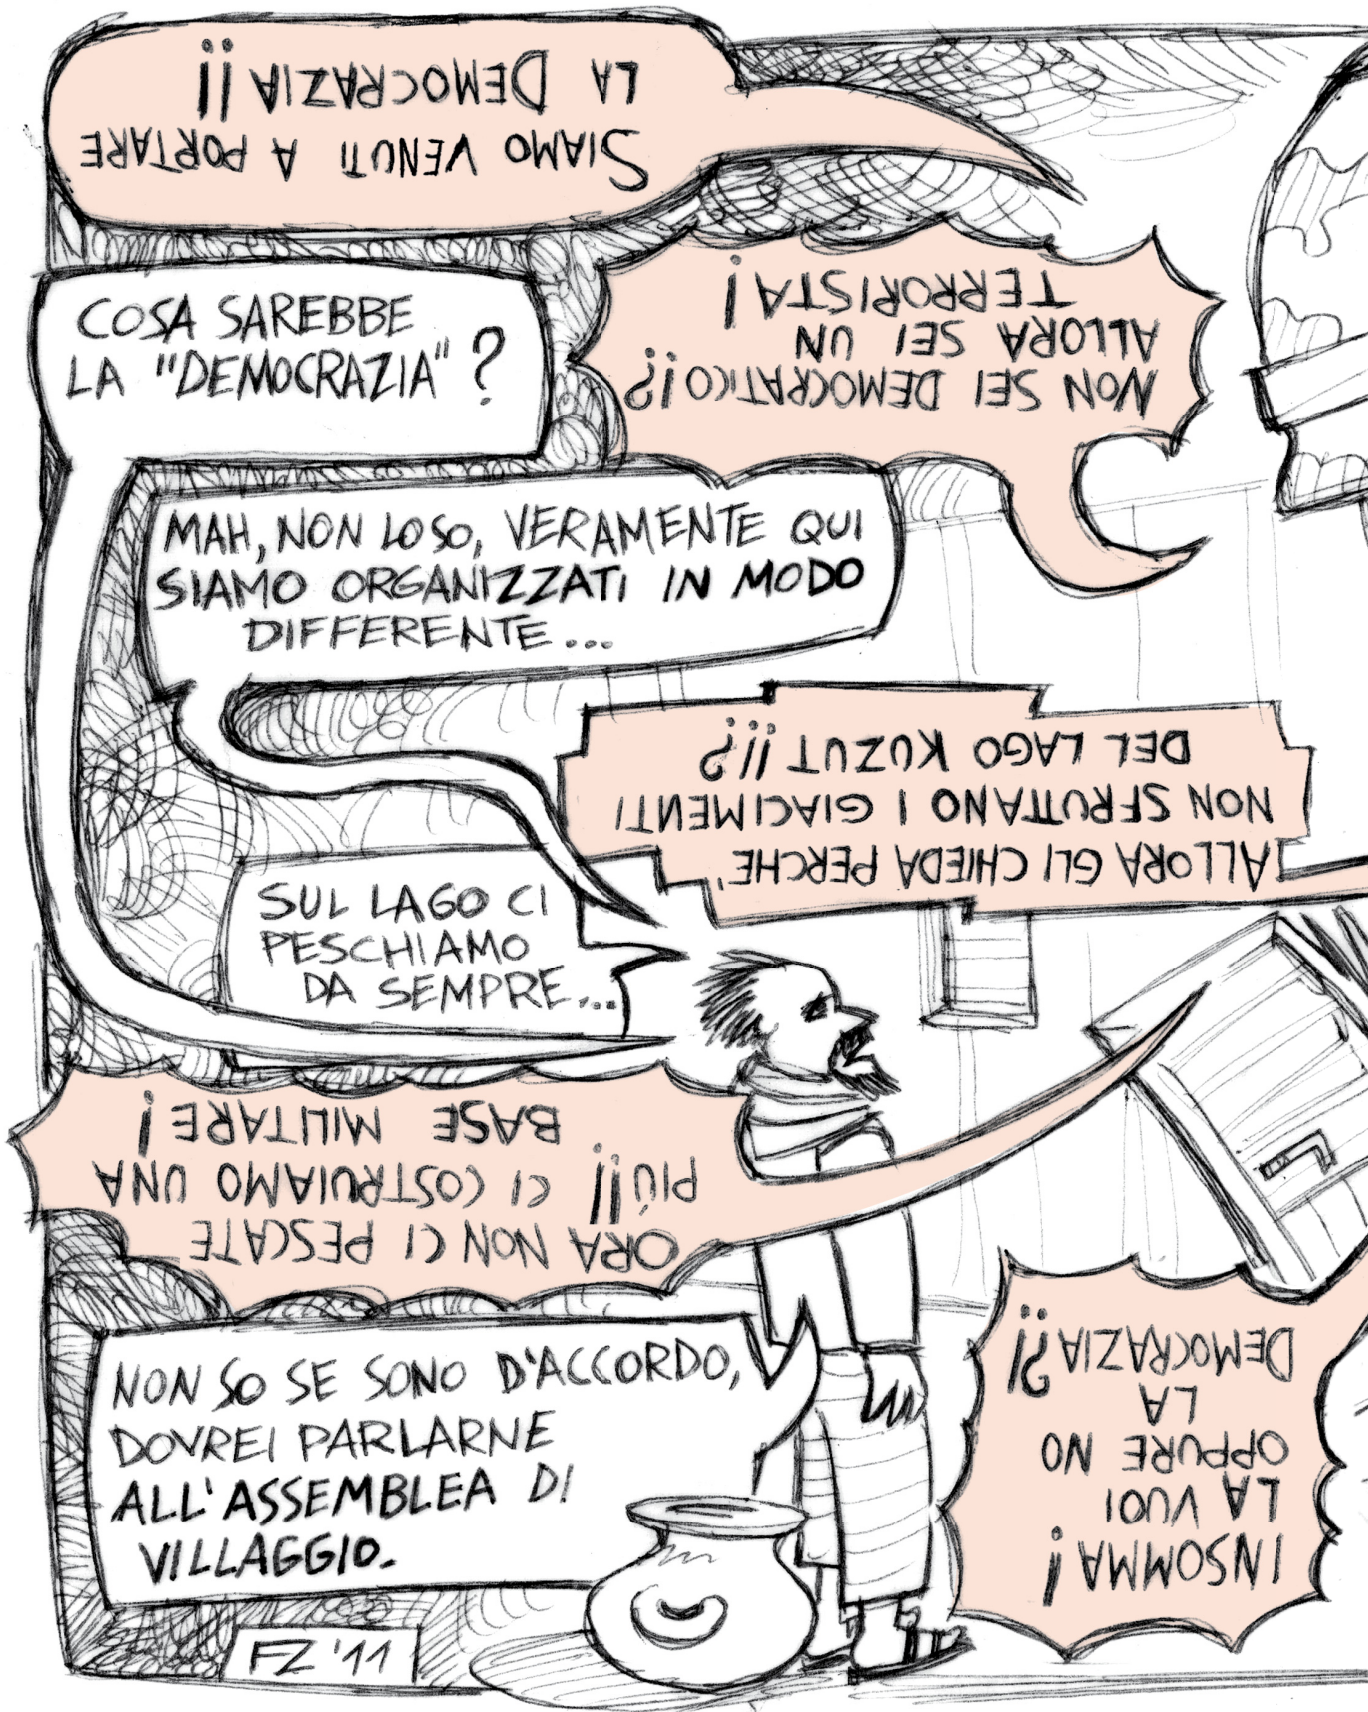 SIAMO VENUTI A PORTARE
LA DEMOCRAZIA!!
COSA SAREBBE
LA "DEMOCRAZIA"?
NON SEI DEMOCRATICO!?
ALLORA SEI UN
TERRORISTA!
MAH, NON LO SO, VERAMENTE QUI
SIAMO ORGANIZZATI IN MODO
DIFFERENTE...
ALLORA GLI CHIEDA PERCHE'
NON SFRUTTANO I GIACIMENTI
DEL LAGO KUZUT !!!?
SUL LAGO CI
PESCHIAMO
DA SEMPRE...
ORA NON CI PESCATE
PIÙ!! CI COSTRUIAMO UNA
BASE MILITARE!
NON SO SE SONO D'ACCORDO,
DOVREI PARLARNE
ALL'ASSEMBLEA DI
VILLAGGIO.
INSOMMA!
LA VUOI
OPPURE NO
LA
DEMOCRAZIA?!
FZ '11